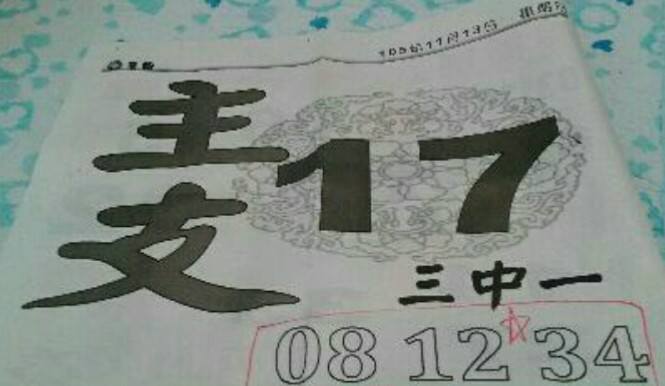 105年11月13日 星期
主支 17
三中一
08 12 34